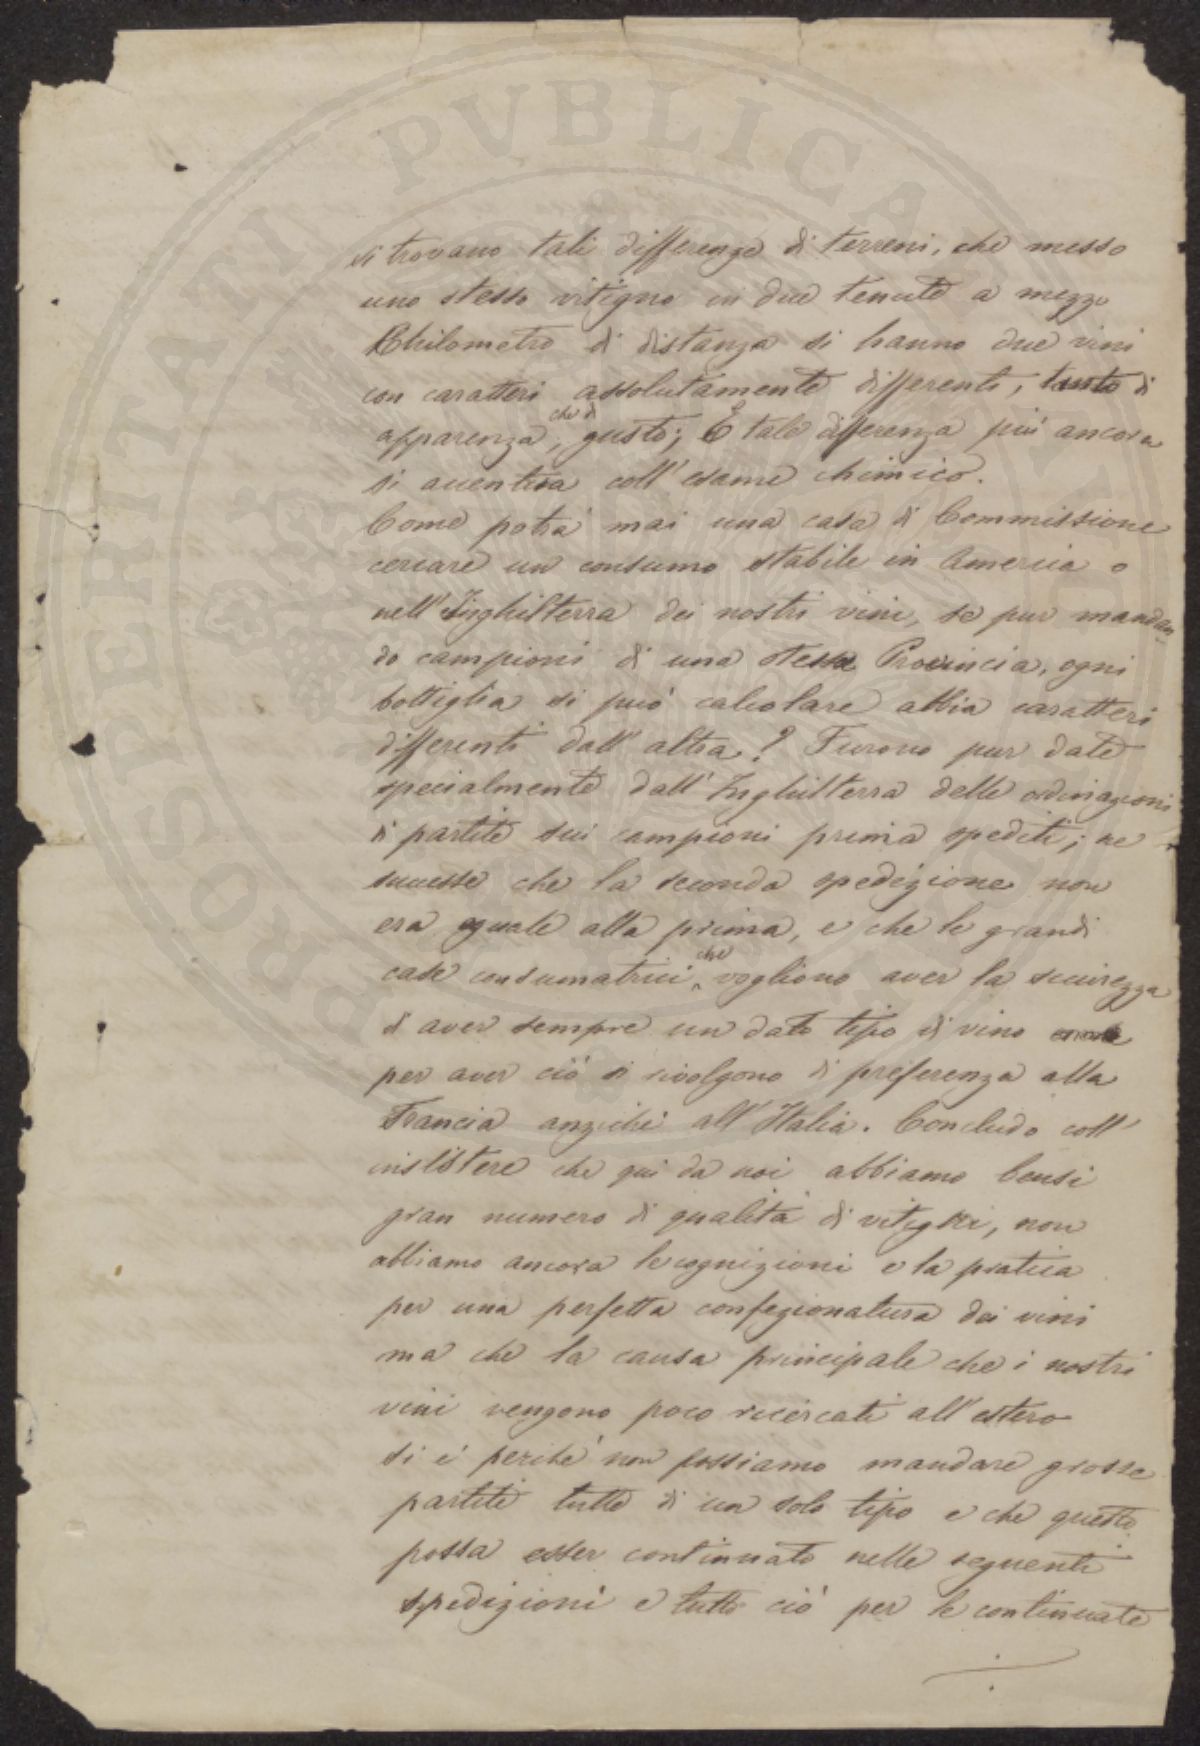 si trovano tali differenze di terreni, che messo
uno stesso vitigno in due tenute a mezzo
Chilometro di distanza si hanno due vini
con caratteri assolutamente differenti, tanto di
apparenza, che di gusto; E tale differenza più ancora
si accentua coll'esame chimico.
Come potrà mai una casa di Commissione
cercare un consumo stabile in America o
nell'Inghilterra dei nostri vini, se pur mandan
do campioni di una stessa Provincia, ogni
bottiglia si può calcolare abbia caratteri
differenti dall'altra? Furono pur date
specialmente dall'Inghilterra delle ordinazioni
di partite sui campioni prima spediti; ne
successe che la seconda spedizione non
era eguale alla prima, e che le grandi
case consumatrici che vogliono aver la sicurezza
di aver sempre un dato tipo di vino
per aver ciò si rivolgono di preferenza alla
Francia anzichè all'Italia. Concludo coll'
insistere che qui da noi abbiamo bensi
gran numero di qualità di vitigni, non
abbiamo ancora le cognizioni e la pratica
per una perfetta confezionatura dei vini
ma che la causa principale che i nostri
vini vengono poco ricercati all'estero
si è perchè non possiamo mandare grosse
partite tutte di un solo tipo e che questo
possa esser continuato nelle seguenti
spedizioni e tutto ciò per le continuate
PROSPERITATI PVBLICAE